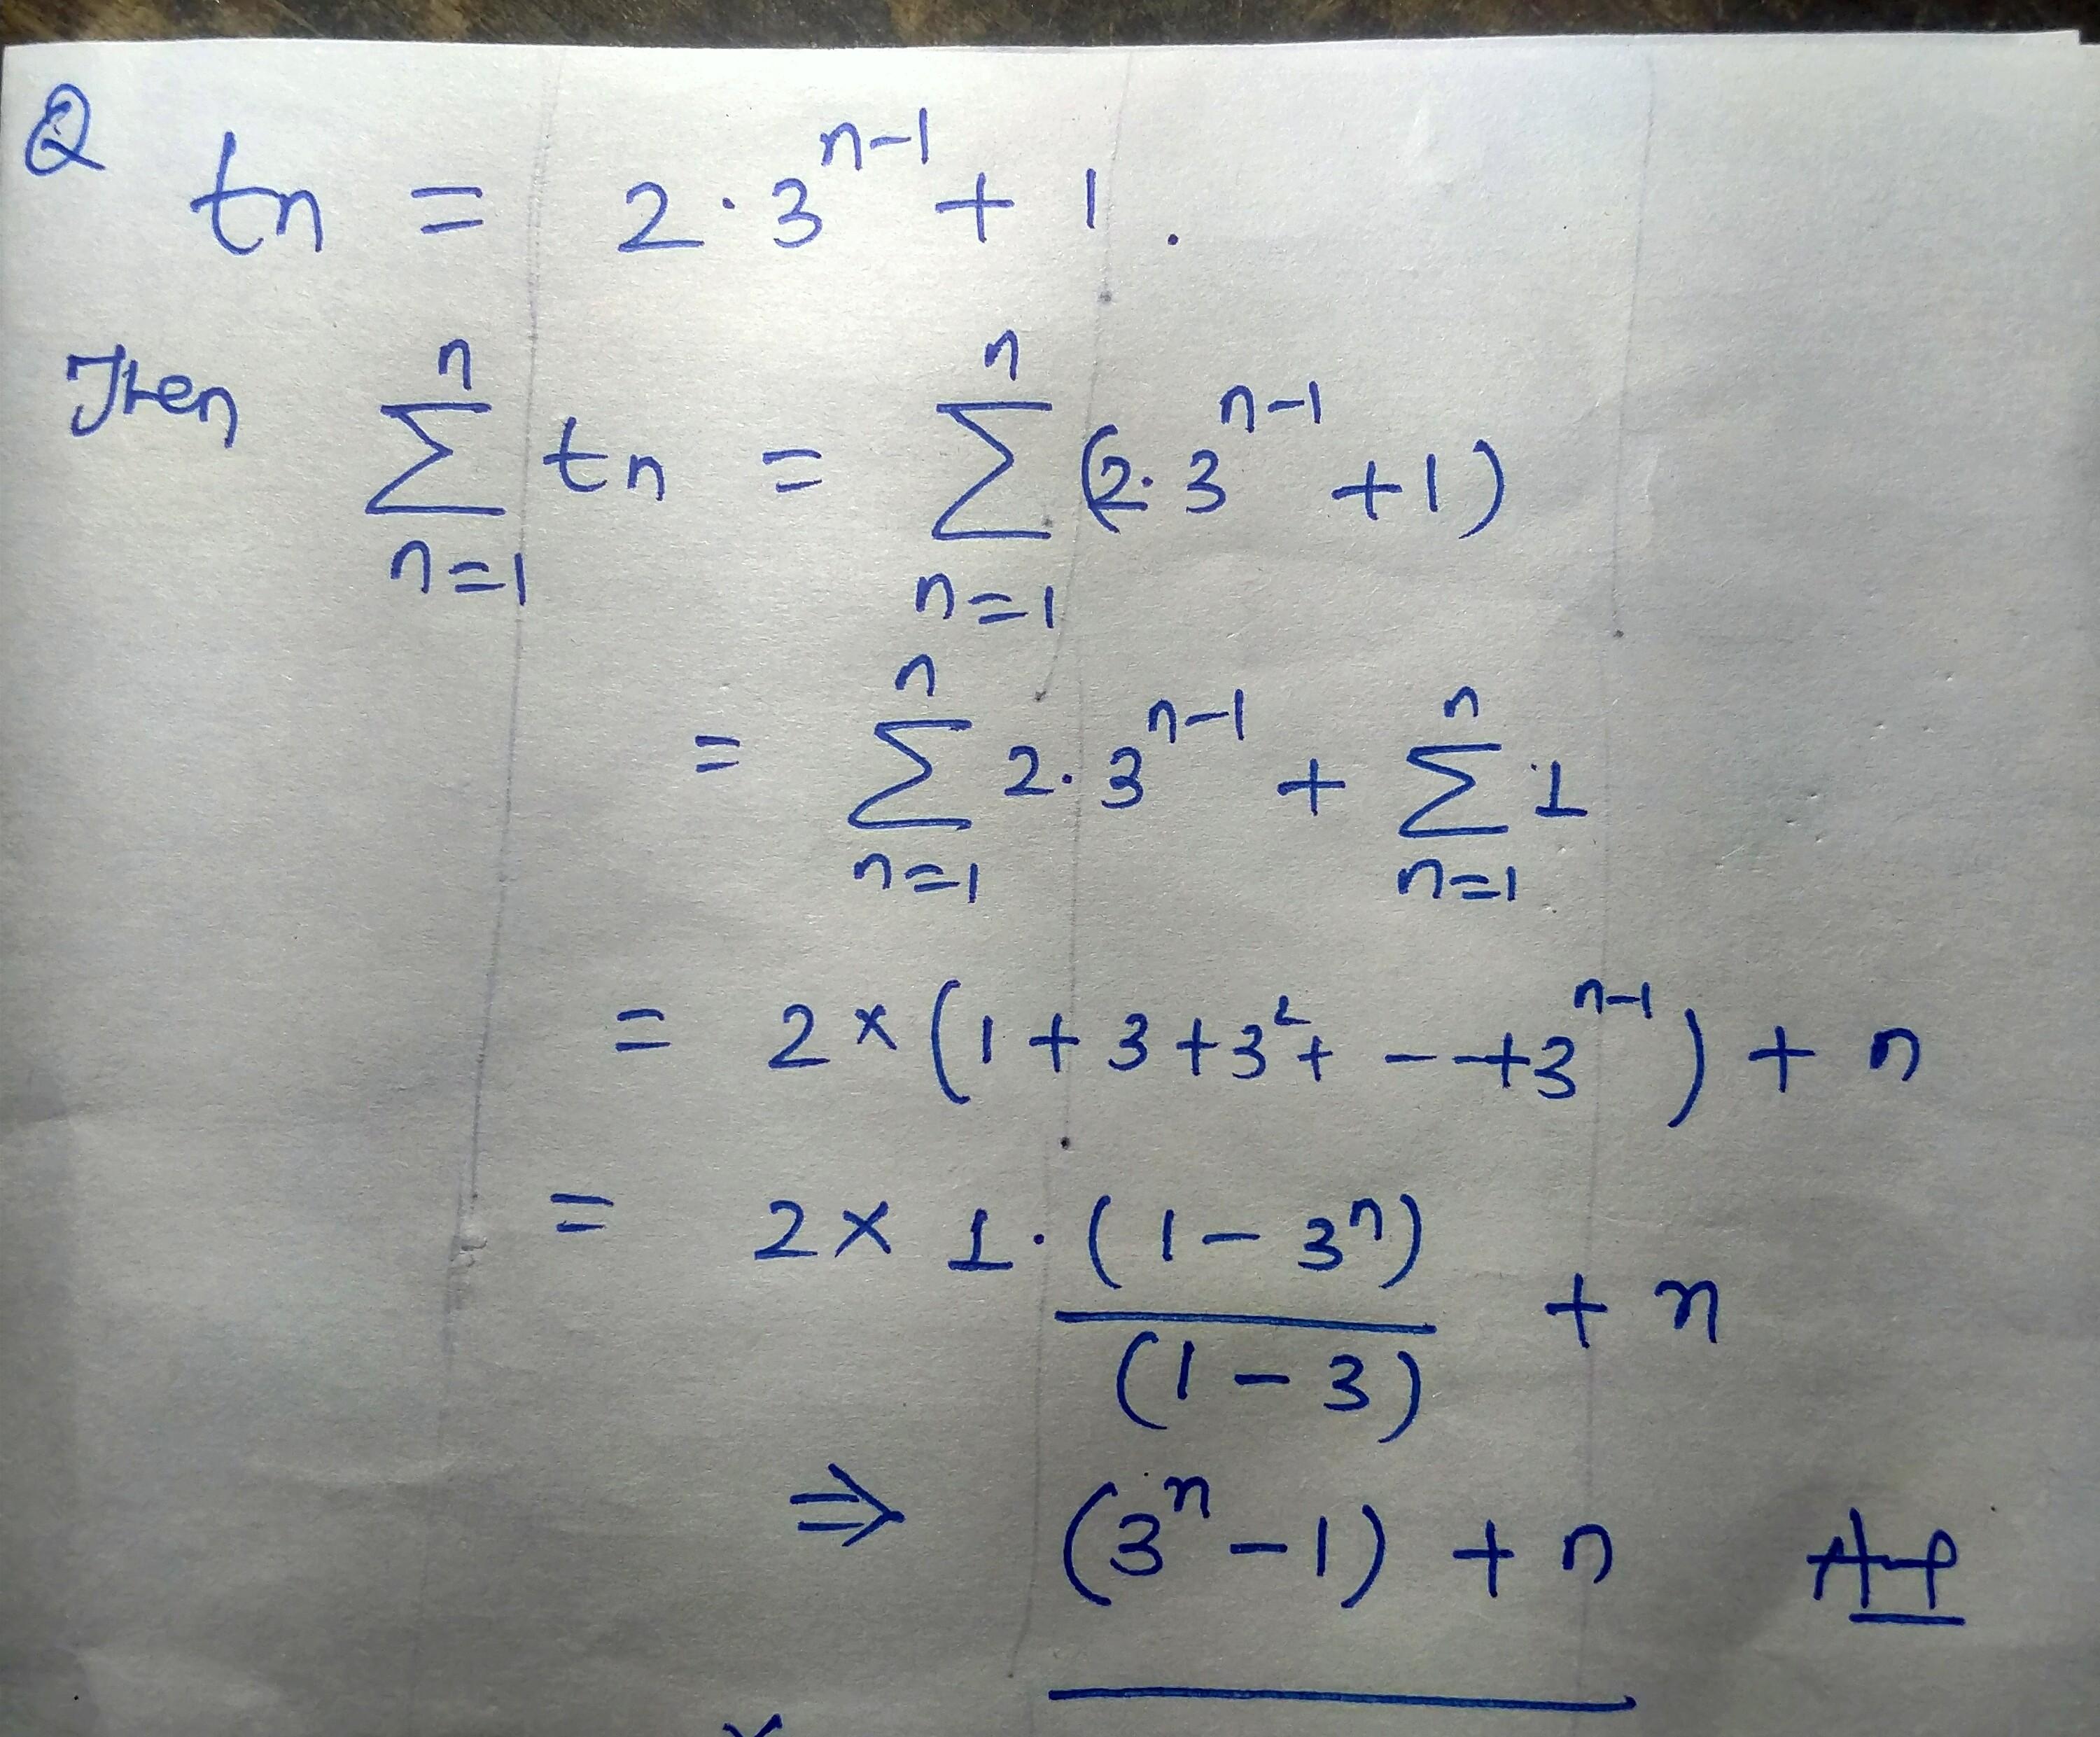 Q tn = 2·3^{n-1} + 1.
Then \sum_{n=1}^{n} tn = \sum_{n=1}^{n} (2·3^{n-1} + 1)
= \sum_{n=1}^{n} 2·3^{n-1} + \sum_{n=1}^{n} 1
= 2 × (1 + 3 + 3^2 + - - + 3^{n-1}) + n
= 2 × 1·\frac{(1 - 3^n)}{(1 - 3)} + n
⇒ (3^n - 1) + n Ans